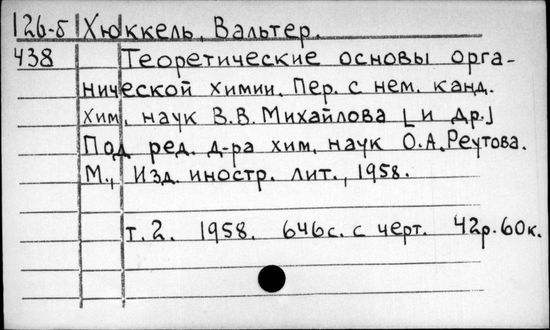 126-б Хюккель, Вальтер.
438 Теоретические основы орга-
нической химии. Пер. с нем. канд.
хим. наук В.В. Михайлова [и др.]
Под ред. д-ра хим. наук О.А. Реутова.
М., Изд. иностр. лит., 1958.
т. 2. 1958. 646с. с черт. 42р. 60к.